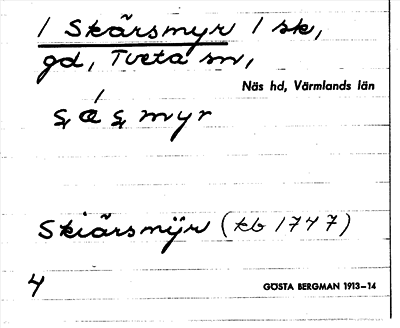 1 Skärsmyr 1 sk,
gd, Tveta sn,
Näs hd, Värmlands län
Skiärsmÿr (kb 1747)
4
GÖSTA BERGMAN 1913–14